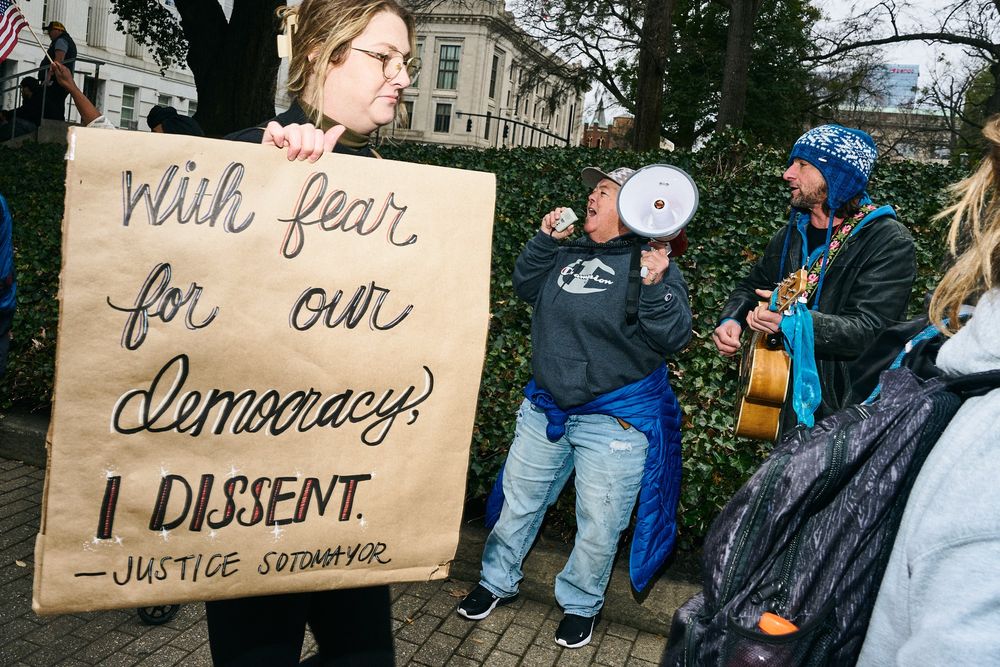 With fear
for our
democracy,
I DISSENT.
— JUSTICE SOTOMAYOR
Champion